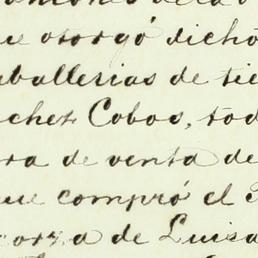 que otorgó dicho
aballerias de tie
chez Cobos, tod
ra de venta de
que compró el
corza de Luisa